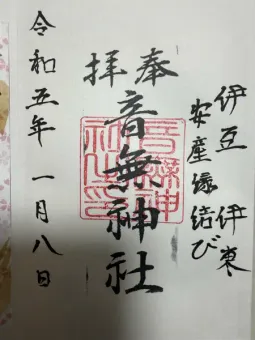 伊豆 伊東
安産縁結び
奉拝
音無神社
令和五年一月八日